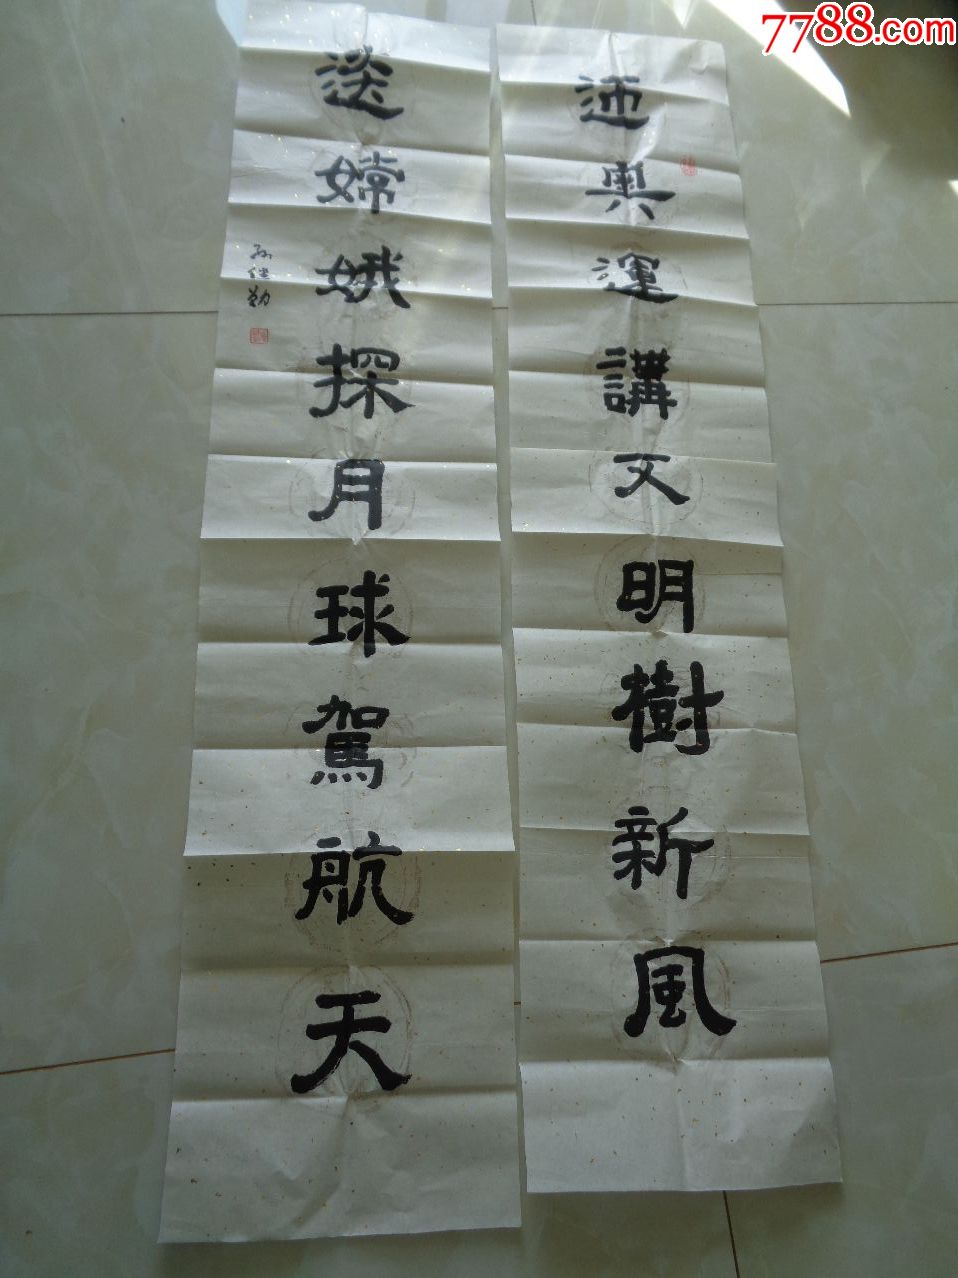 7788.com
迎奧運講文明樹新風
送嫦娥探月球駕航天
孙继勤